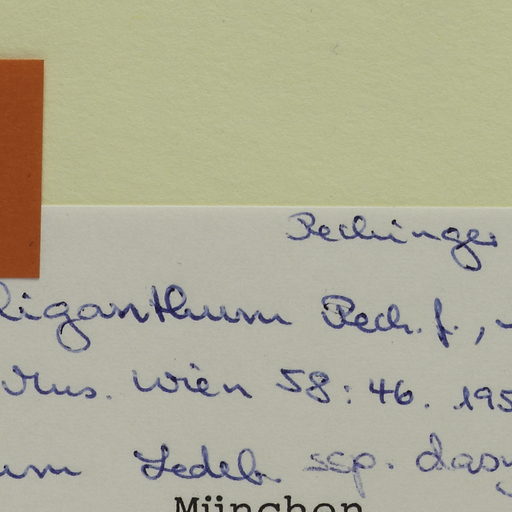 Rechinger
liganthum Rech. f.,
Mus. Wien 58: 46. 195
um Ledeb. ssp. dasy
München